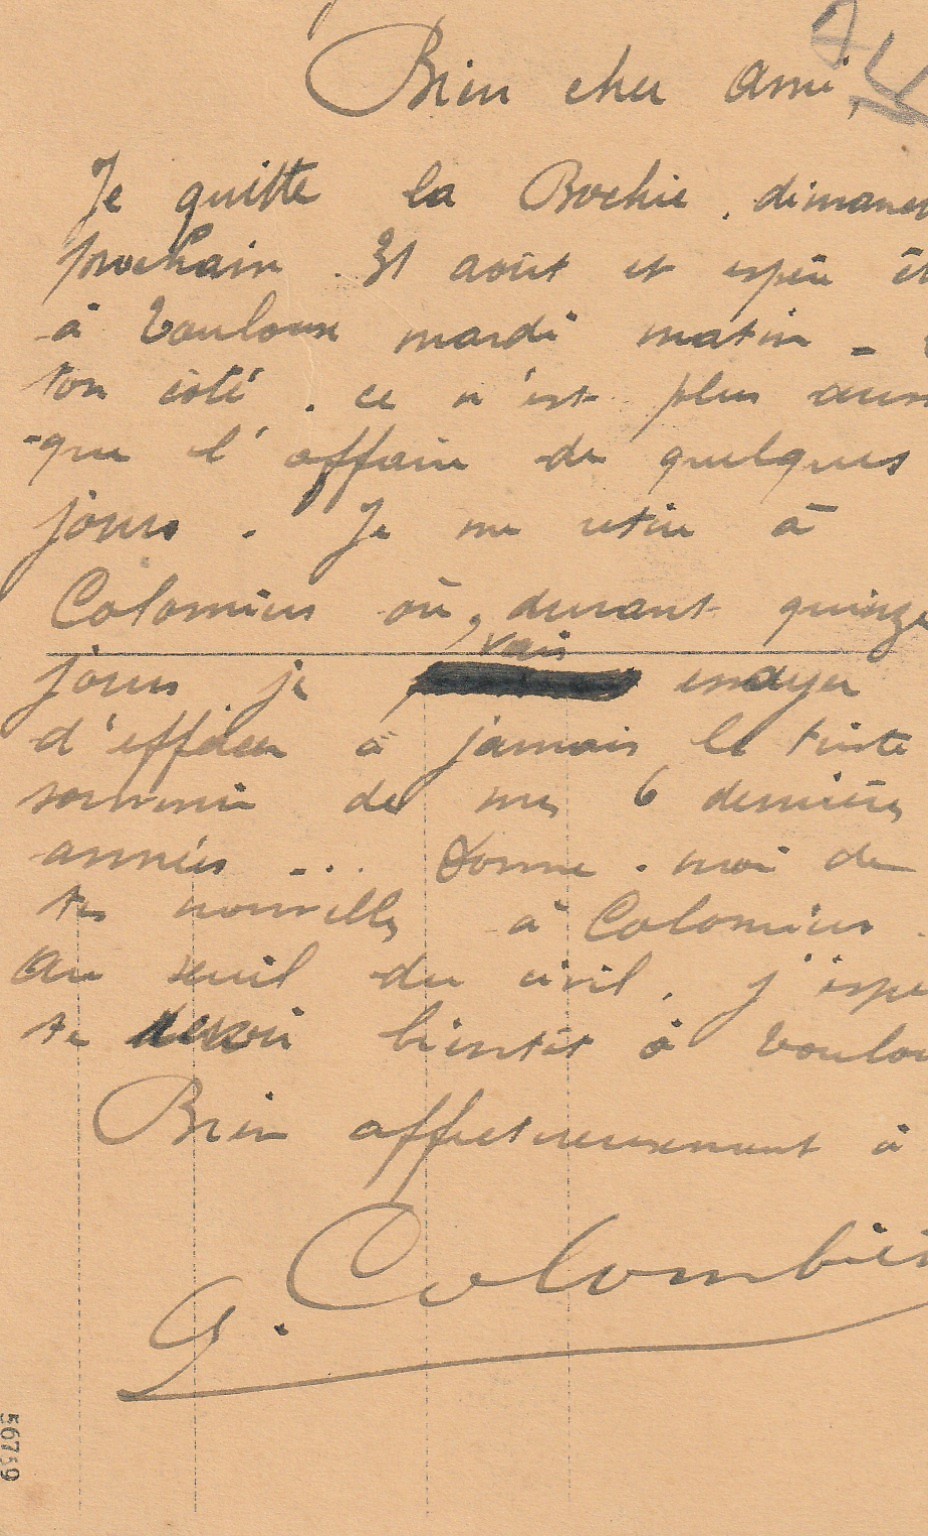 Bien cher ami,
Je quitte la Bochie, dimanch
prochain. 31 août et espère êt
à Toulouse mardi matin -
ton côté. ce n'est plus auss
-que l'affaire de quelques
jours. Je me retire à
Colomiers où, durant quinze
vais
jours je essayer
d'effacer à jamais le triste
souvenir de mes 6 dernières
années ... Donne-moi de
tes nouvelles à Colomiers.
Au seuil du civil, j'espè
te revoir bientôt à Toulou
Bien affectueusement à
G. Colombiè
56759